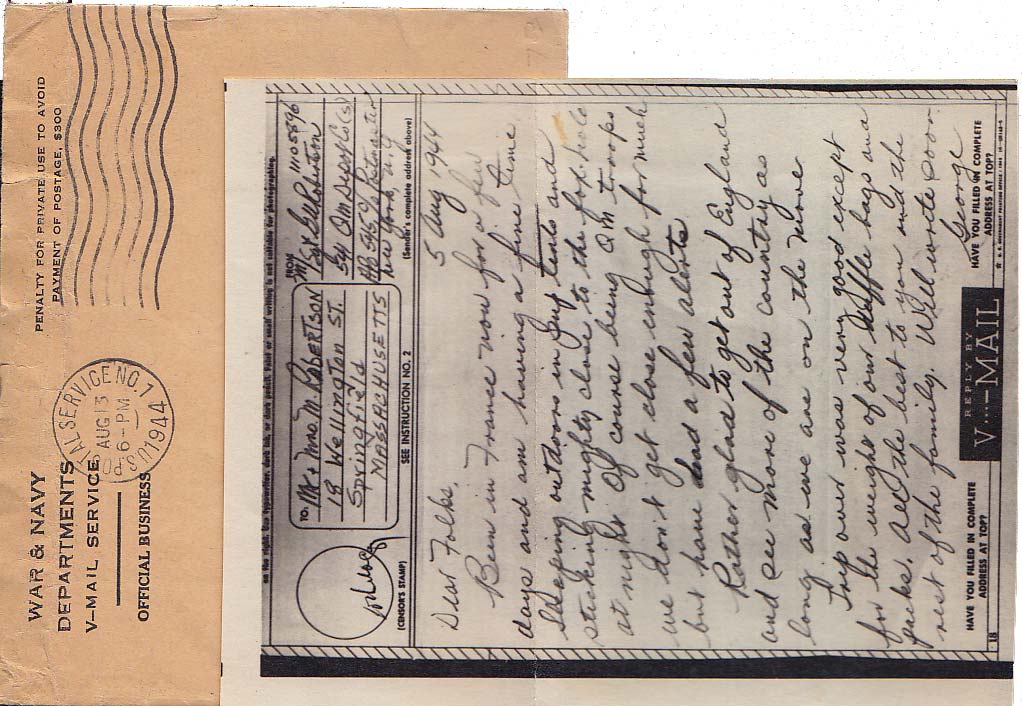 WAR & NAVY
DEPARTMENTS
V–MAIL SERVICE
OFFICIAL BUSINESS
PENALTY FOR PRIVATE USE TO AVOID
PAYMENT OF POSTAGE, $300
U.S. POSTAL SERVICE NO. 7
AUG 13
6-PM
1944
(CENSOR'S STAMP)
TO:
Mr & Mrs. M. ROBERTSON
18 Wellington ST.
Springfield
MASSACHUSETTS
SEE INSTRUCTION NO. 2
FROM
M/Sgt G. Robertson 11105896
54 QM
APO 350 Postmaster
New York, N.Y.
(Sender's complete address above)
5 Aug 1944
Dear Folks,
Been in France now for a few
days and am having a fine time
sleeping outdoors in pup tents and
sticking mighty close to the fox hole
at night. Of course being QM troops
we don't get close enough for much
but have had a few alerts
Rather glad to get out of England
and see more of the country as
long as we are on the move
Trip over was very good except
for the weight of our duffle bags and
packs. All the best to you and the
rest of the family. Will write soon
George
HAVE YOU FILLED IN COMPLETE
ADDRESS AT TOP?
REPLY BY
V···–MAIL
HAVE YOU FILLED IN COMPLETE
ADDRESS AT TOP?
18